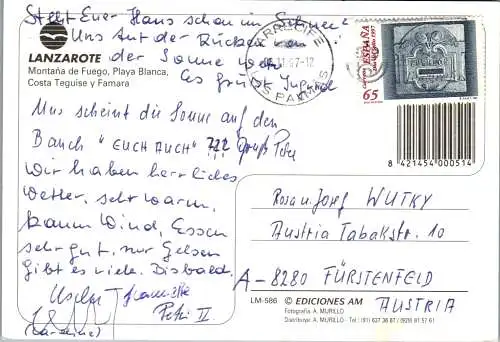 Steht Euer Haus schon im Schnee?
Uns Auf der Rücken
LANZAROTE
der Sonne
Montaña de Fuego, Playa Blanca,
Costa Teguise y Famara
Es grüßt
Uns scheint die Sonne auf den
Bauch "EUCH AUCH" ??? Gruß Petu
Wir haben herrliches
Wetter, sehr warm,
kaum Wind, Essen
sehr gut, nur Gelsen
gibt es viele. Bis bald.
Petri II
ARRECIFE
LAS PALMAS
Correos
ESPAÑA
1997
65
BUZONES
8 421454 000514
Rosa u. Josef WUTKY
Austria Tabakstr. 10
A-8280 FÜRSTENFELD
AUSTRIA
LM-586 © EDICIONES AM
Fotografía A. MURILLO
Distribuye: A. MURILLO - Tel. (91) 637 36 87 / (928) 81 57 61